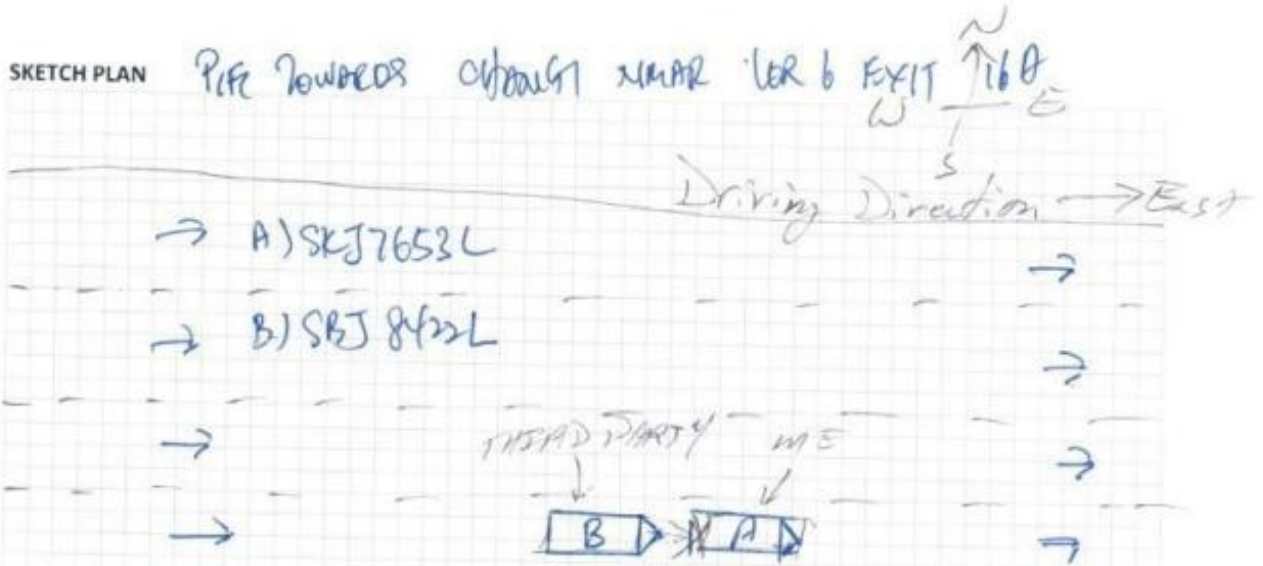 N
SKETCH PLAN PIE TOWARDS CHANGI NEAR EXIT 16A
W E
S
Driving Direction → East
A) SKJ7653L
B) SBJ 8422L
THIRD PARTY ME
B A